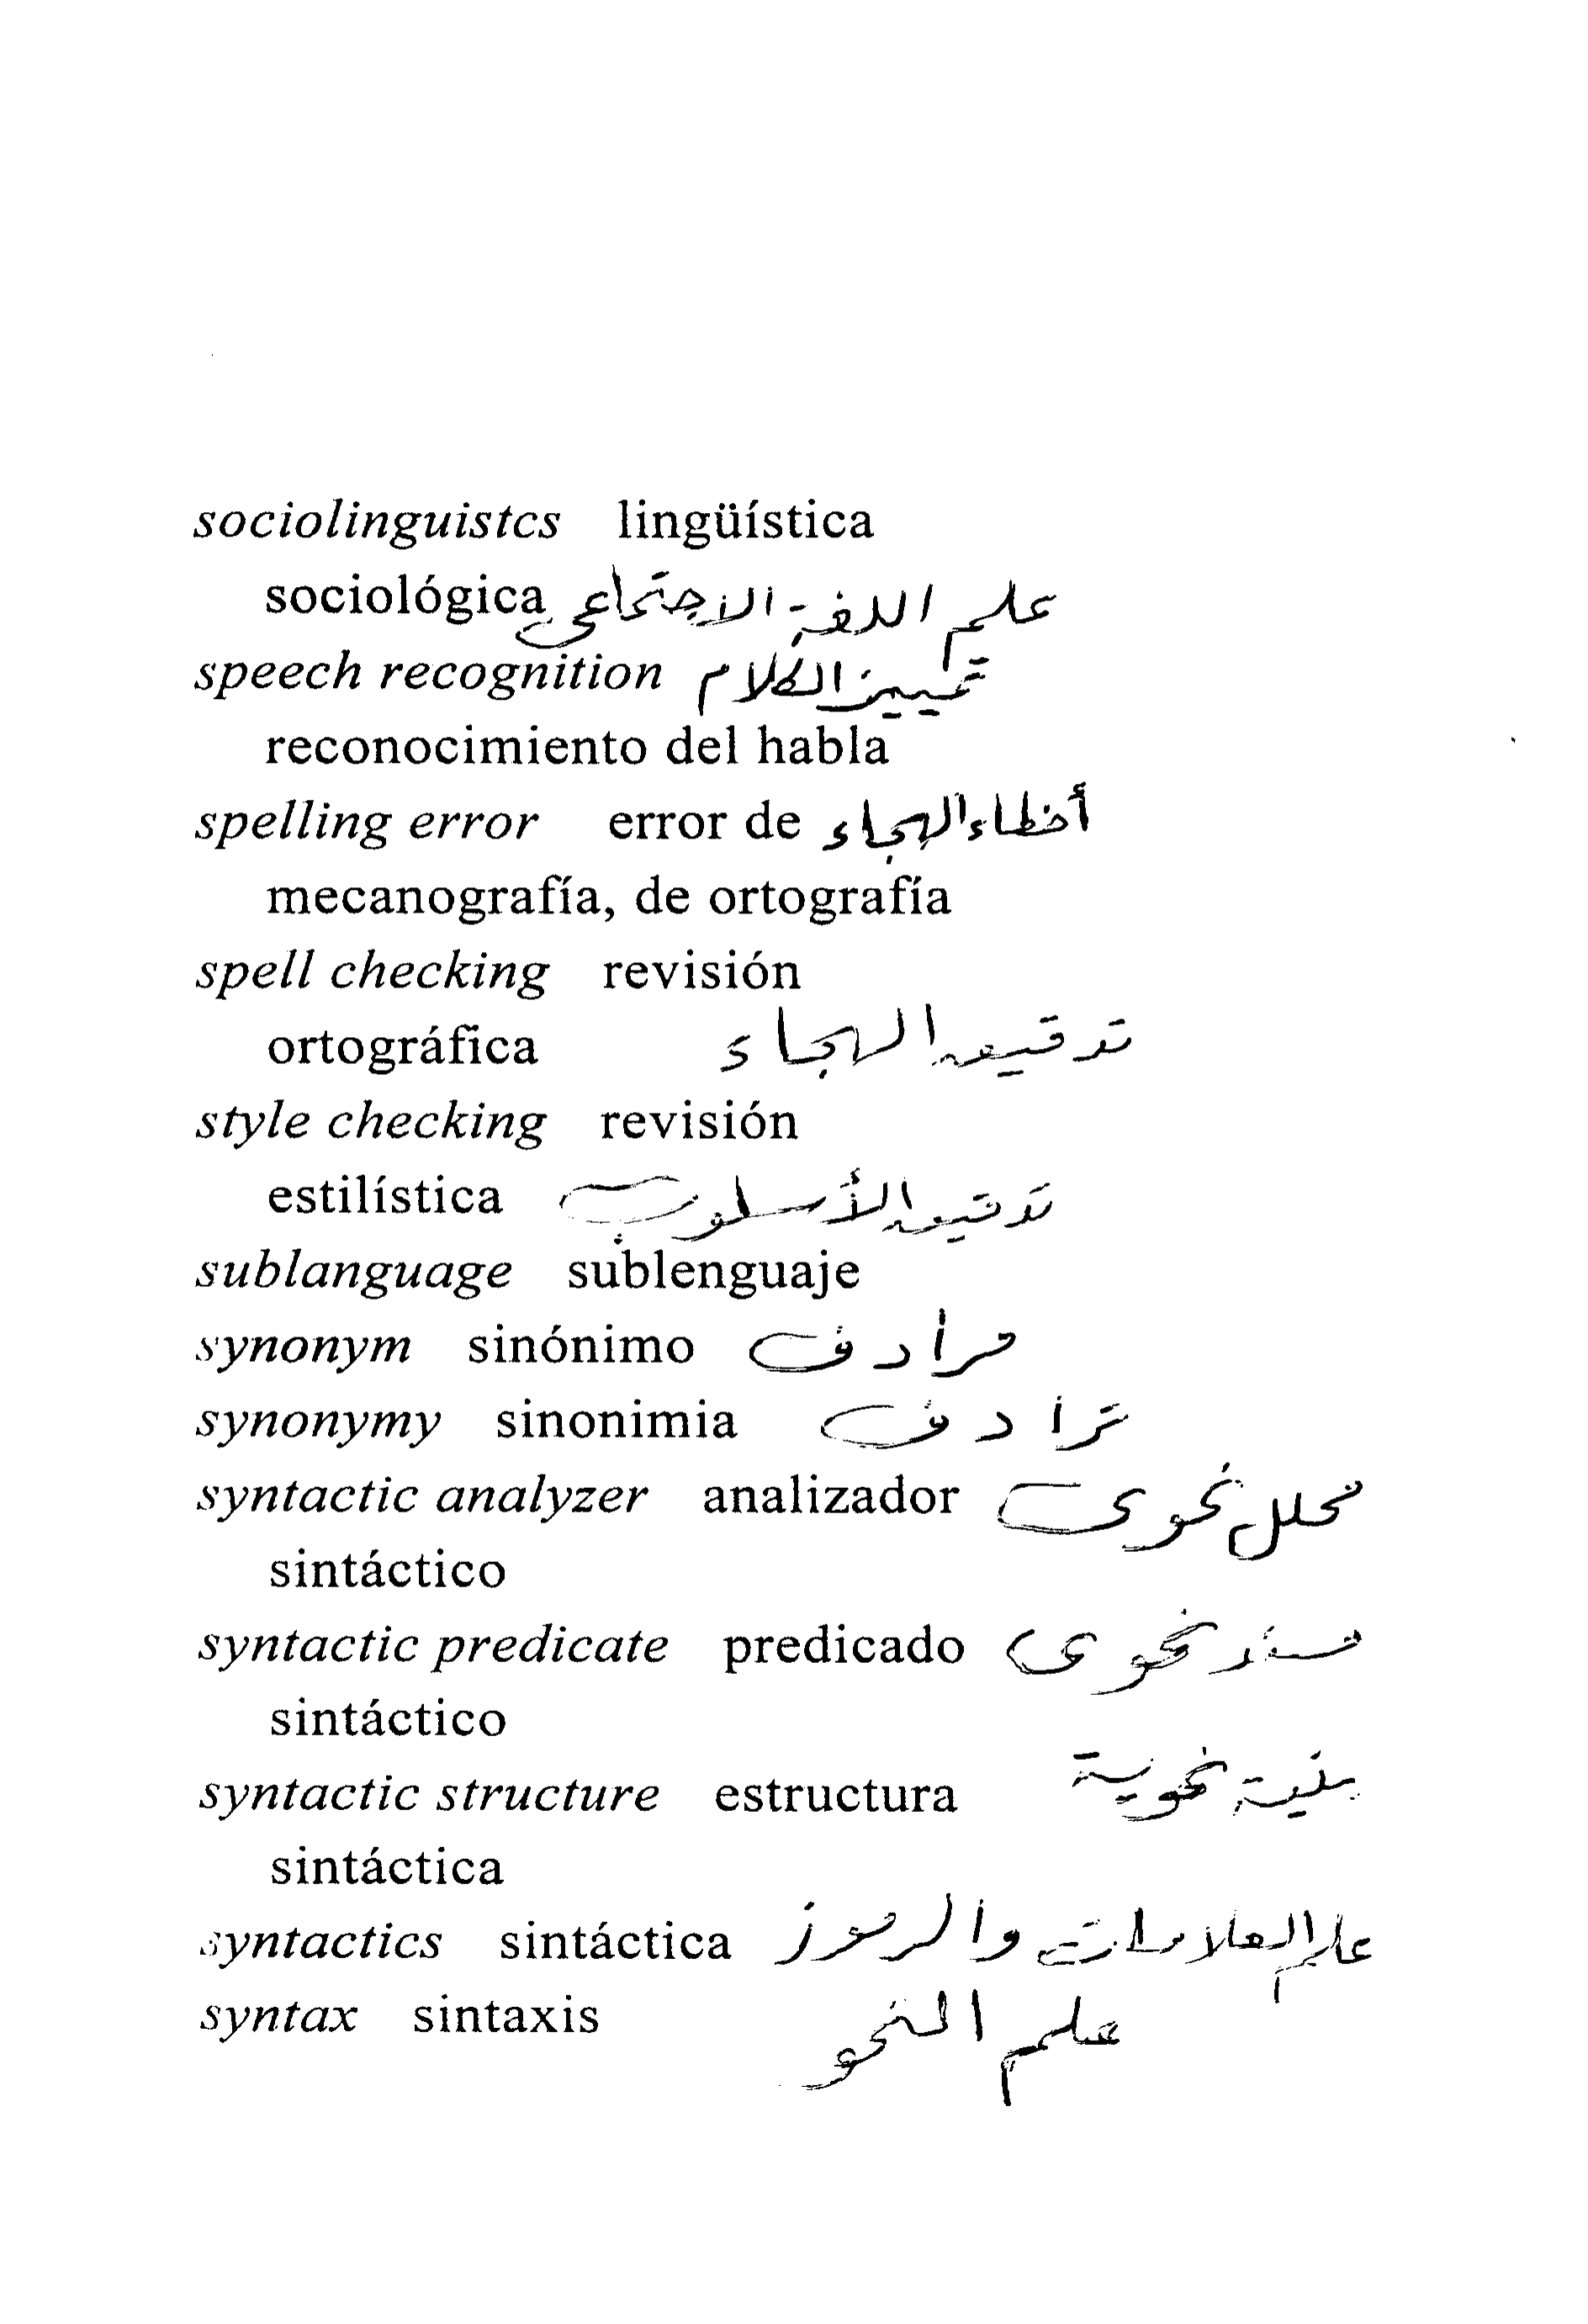 sociolinguistcs lingüística
sociológica علم اللغة الاجتماعي
speech recognition تمييز الكلام
reconocimiento del habla
spelling error error de أخطاء الهجاء
mecanografía, de ortografía
spell checking revisión
ortográfica تدقيق الهجاء
style checking revisión
estilística تدقيق الأسلوب
sublanguage sublenguaje
synonym sinónimo مرادف
synonymy sinonimia ترادف
syntactic analyzer analizador محلل نحوى
sintáctico
syntactic predicate predicado مسند نحوى
sintáctico
syntactic structure estructura بنية نحوية
sintáctica
syntactics sintáctica علم العلامات والرموز
syntax sintaxis علم النحو